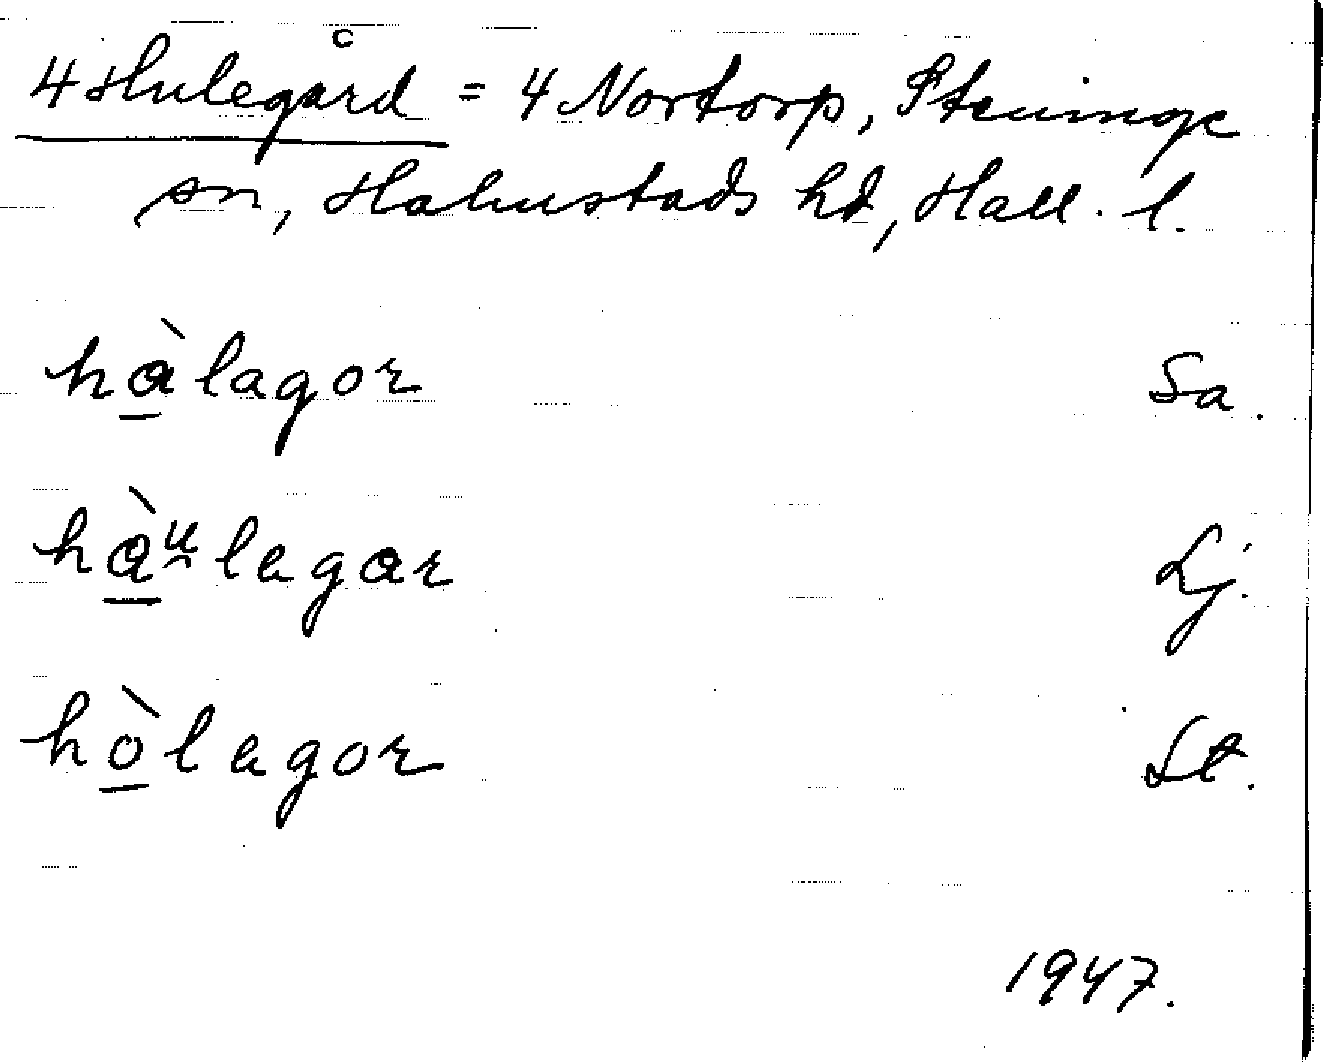 4 Hulegård = 4 Nortorp, Steninge
sn, Halmstads hd, Hall. l.
hàlagor Sa.
hàu̯lagar Lj.
hòlagor St.
1947.